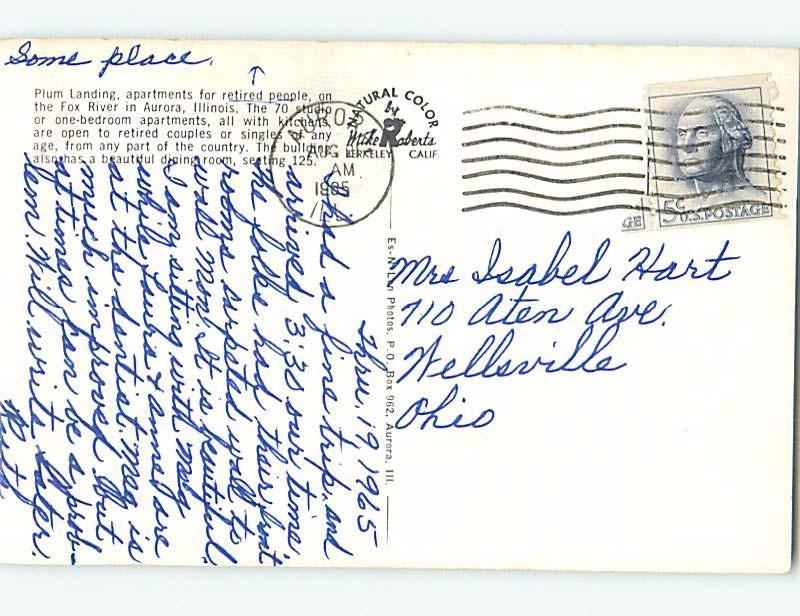 Some place.
Plum Landing, apartments for retired people, on
the Fox River in Aurora, Illinois. The 70 studio
or one-bedroom apartments, all with kitchens,
are open to retired couples or singles of any
age, from any part of the country. The building
also has a beautiful dining room, seating 125.
NATURAL COLOR
by
Mike Roberts
BERKELEY CALIF.
AUG
AM
1965
GE
5c U.S. POSTAGE
Thru. 19, 1965
Had a fine trip, and
arrived 3:30 our time,
the folks had their front
rooms carpeted wall to
wall Mon. It is beautiful.
I am sitting with Meg
while Laura & Anne are
at the dentist. Meg is
much improved. But
at times can be a prob-
lem. Will write later.
Ruth
Es-N-Len Photos, P.O. Box 962, Aurora, Ill.
Mrs Isabel Hart
710 Aten Ave.
Wellsville
Ohio